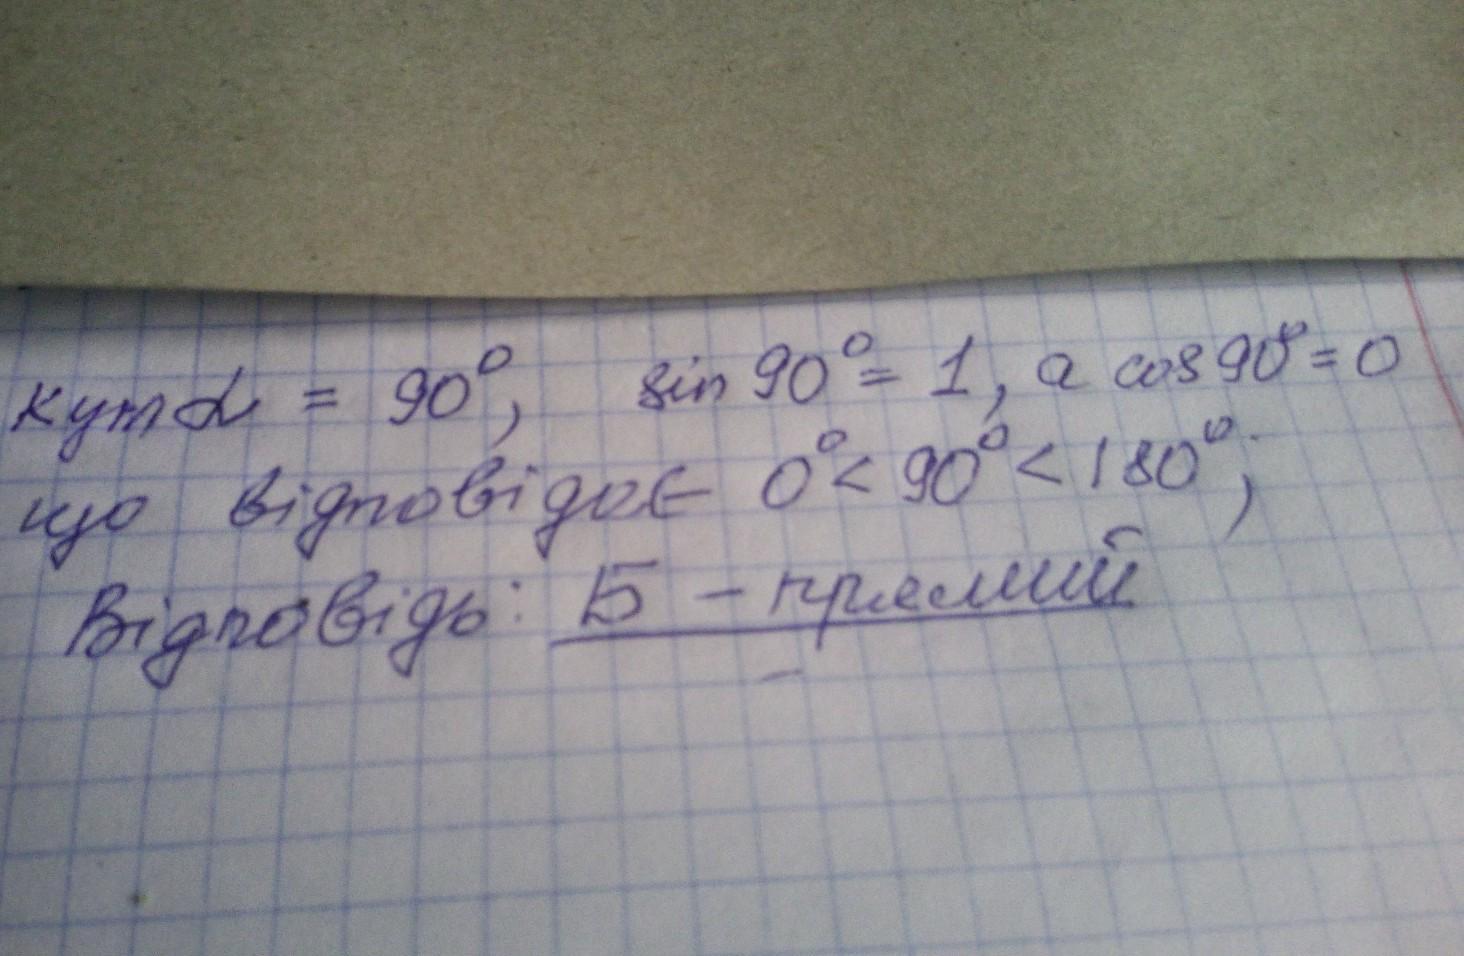 кут α = 90°, sin 90° = 1, а cos 90° = 0
що відповідає 0° < 90° < 180°;
Відповідь: Б – прямий